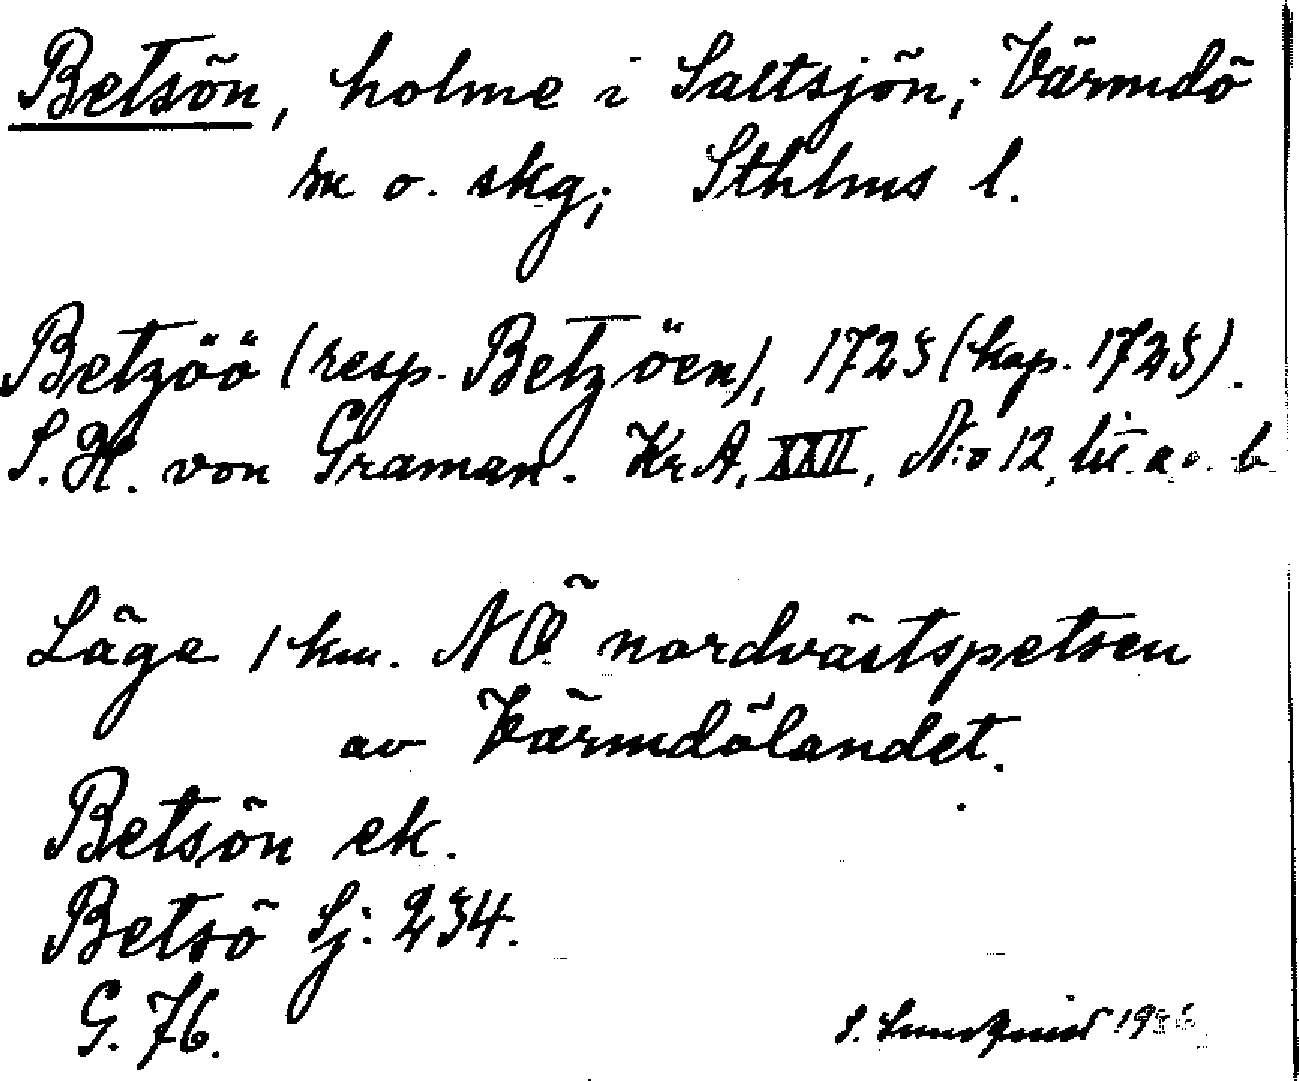 Betsön, holme i Saltsjön; Värmdö
sn o. skg; Sthlms l.
Betzöö (resp. Betzöen), 1725 (kop. 1725).
S. H. von Graman. KrA, XXII, N:o 12, lit. a o. b
Läge 1 km. NÖ nordvästspetsen
av Värmdölandet.
Betsön ek.
Betsö Sj: 234.
G. 76.
S. Lundquist